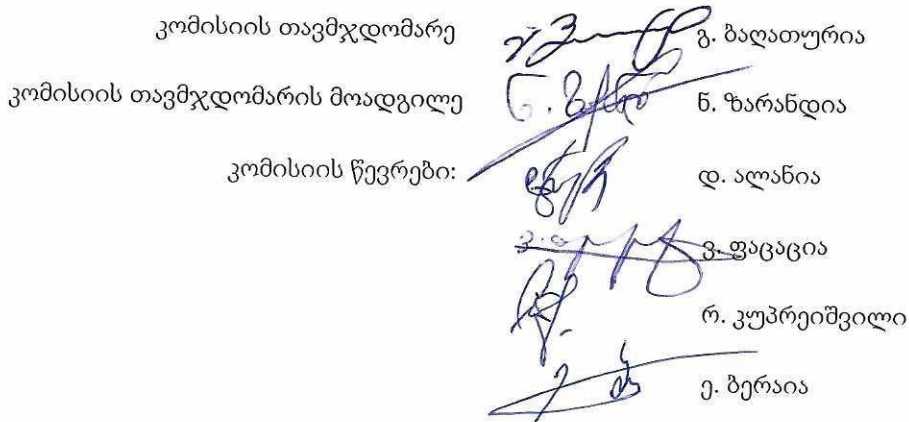 კომისიის თავმჯდომარე გ. ბაღათურია
კომისიის თავმჯდომარის მოადგილე ნ. ზარანდია
კომისიის წევრები: დ. ალანია
ვ. ფაცაცია
რ. კუპრეიშვილი
ე. ბერაია